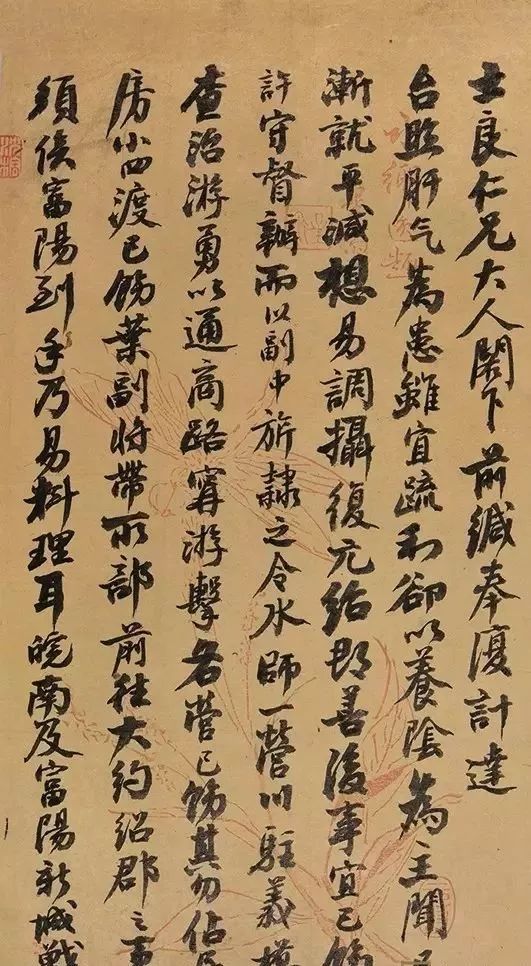 士良仁兄大人閣下前緘奉復計達
台照肝气為患雖宜疏利卻以養陰為主聞
漸就平減想易調攝復元紹郡善後事宜已飭
許守督辦而以副中旂隸之令水師一營川駐義
查治游勇以通商路甯游擊各營已飭其勿佔民
房小西渡已飭葉副将帶所部前往大約紹郡之事
須俟富陽到手乃易料理耳皖南及富陽新城戰